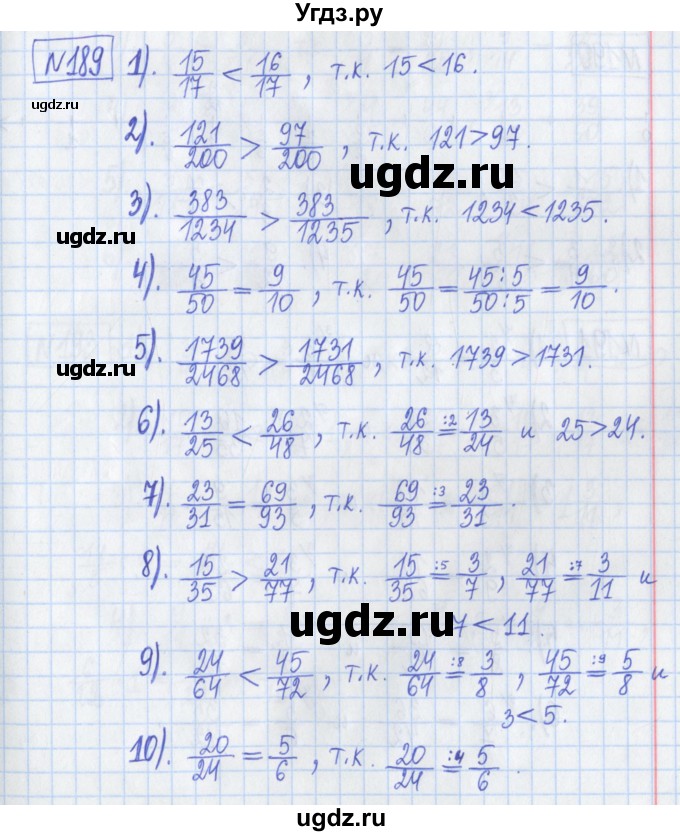 Угдз.ру
№189 1). 15/17 < 16/17, т.к. 15 < 16.
ugdz.ru
2). 121/200 > 97/200, т.к. 121 > 97.
ugdz.ru
3). 383/1234 > 383/1235, т.к. 1234 < 1235.
ugdz.ru
4). 45/50 = 9/10, т.к. 45/50 = 45:5/50:5 = 9/10.
5). 1739/2468 > 1731/2468, т.к. 1739 > 1731.
ugdz.ru
ugdz.ru
6). 13/25 < 26/48, т.к. 26/48 :2= 13/24 и 25 > 24.
7). 23/31 = 69/93, т.к. 69/93 :3= 23/31.
8). 15/35 > 21/77, т.к. 15/35 :5= 3/7, 21/77 :7= 3/11 и
ugdz.ru
7 < 11.
9). 24/64 < 45/72, т.к. 24/64 :8= 3/8, 45/72 :9= 5/8 и
3 < 5.
10). 20/24 = 5/6, т.к. 20/24 :4= 5/6.
ugdz.ru
ugdz.ru